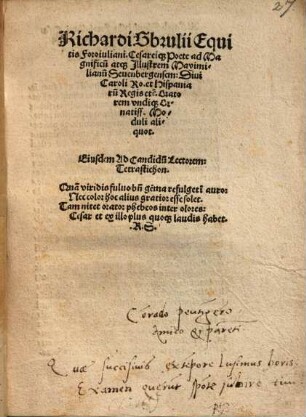 27
Richardi Sbrulii Equi
tis Foroiuliani. Cesareiqꝫ Poete ad Ma
gnificũ atqꝫ Illustrem Maximi⸗
lianũ Seuenbergensem: Diui
Caroli Ro. et Hispania
rũ Regis etc̃. Orato
rem vndiqꝫ Or⸗
natiss. Mo⸗
duli ali⸗
quot.
Eiusdem Ad Candidũ Lectorem:
Tetrastichon.
Quã viridis fuluo bñ gẽma refulget auro:
Nec color hoc alius gratior esse solet.
Tam nitet orator phebeos inter olores:
Cesar et ex illo plus quoqꝫ laudis habet.
R. S.
amico et parẽti
Quæ succisiuis extẽpore lusimus horis
Examen querunt